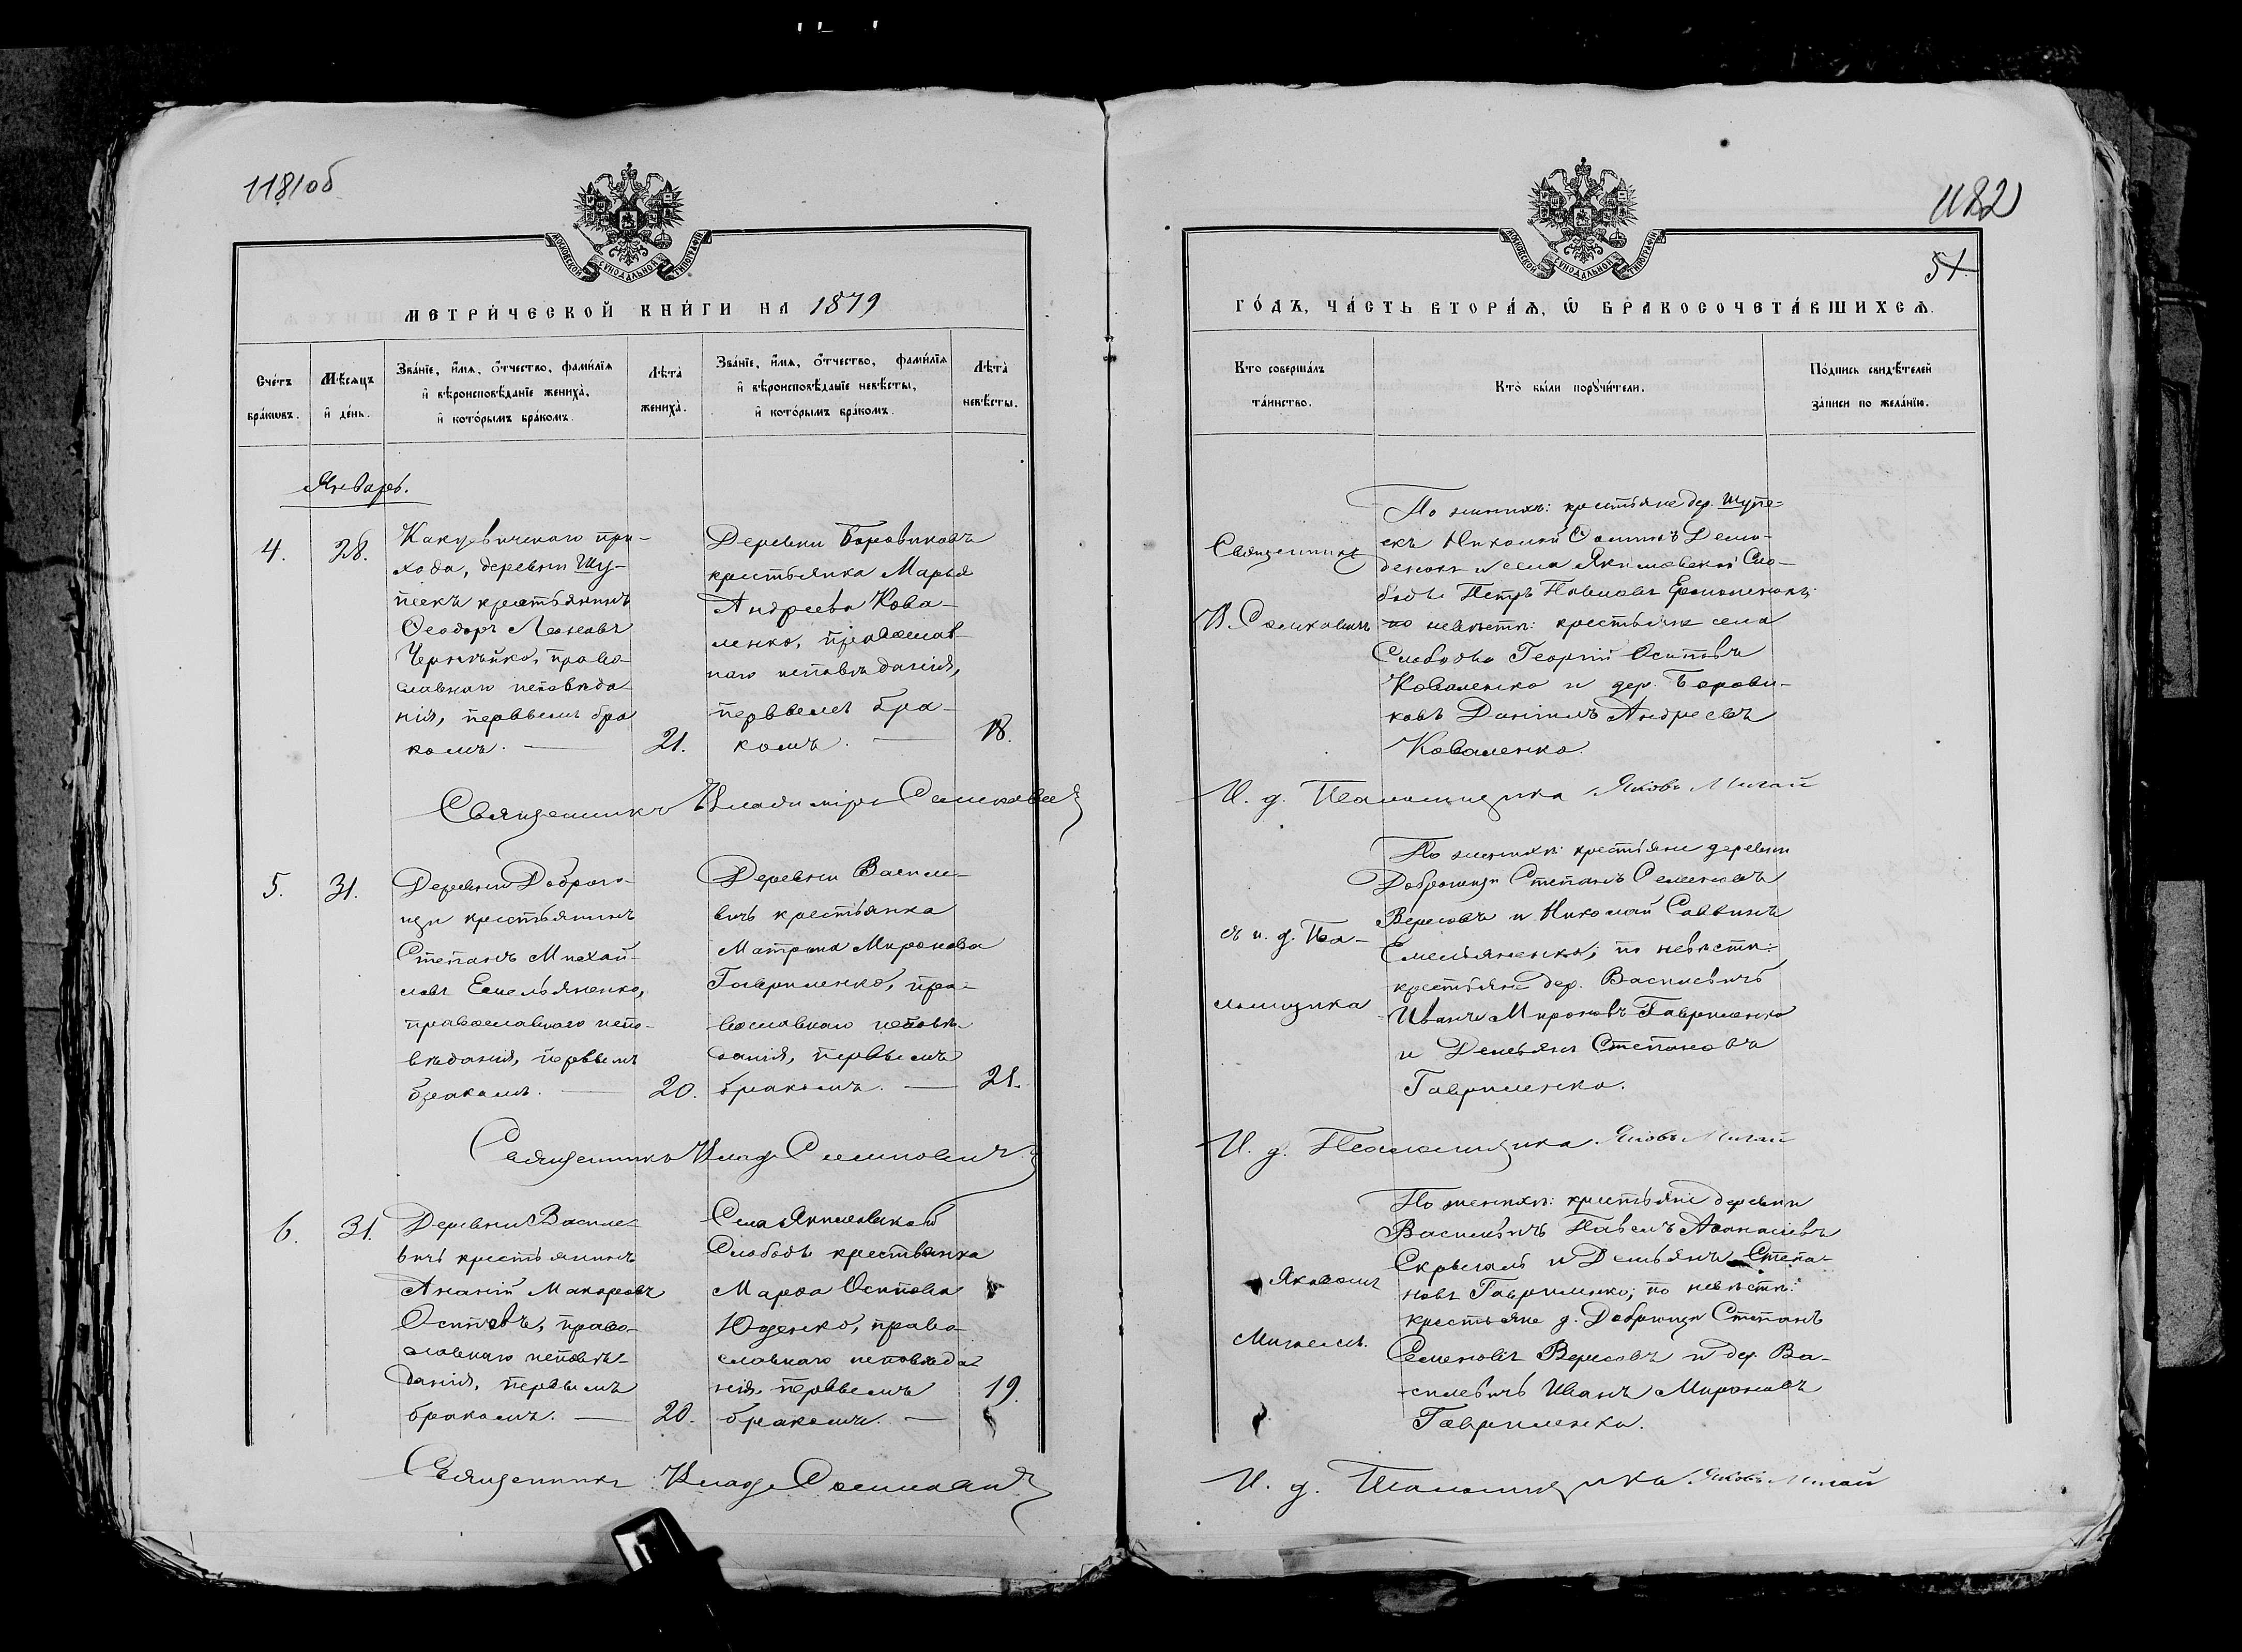 1181об
МОСКОВСКОЙ СУНОДАЛЬНОЙ ТИПОГРАФІИ
МЕТРИ́ЧЕСКОЙ КНИ́ГИ НА 1879
Сче́тъ бра́кωвъ.
Мѣ́сяцъ и҆ де́нь.
Зва́нїе, и҆́мѧ, ѻ҆́тчество, фами́лїѧ и҆ вѣроисповѣ́данїе жениха̀, и҆ кото́рымъ бра́комъ.
Лѣ́та жениха̀.
Зва́нїе, и҆́мѧ, ѻ҆́тчество, фами́лїѧ и҆ вѣроисповѣ́данїе невѣ́сты, и҆ кото́рымъ бра́комъ.
Лѣ́та невѣ́сты.
Январь.
4.
28.
прихода, деревни Шу-
пеекъ крестьянинъ
Ѳеодоръ Леоновъ
право-
славнаго исповѣда-
нія, первымъ бра
комъ. —
21.
Деревни Боровиковъ
крестьянка Марья
Андреева Кова-
ленко, православ-
наго исповѣданія,
первымъ бра-
комъ. —
18.
Священникъ Владиміръ
5.
31.
Деревни Доброго-
щи крестьянинъ
Степанъ Михай-
ловъ Емельяненко,
православнаго испо-
вѣданія, первымъ
бракомъ. —
20.
Деревни Василе-
вичъ крестьянка
Матрона Миронова
Гавриленко, пра-
вославнаго исповѣ-
данія, первымъ
бракомъ. —
21.
Священникъ Влад.
6.
31.
Деревни Василе-
вичъ крестьянинъ
Ананій Макаровъ
Осиповъ, право-
славнаго исповѣ-
данія, первымъ
бракомъ. —
20.
Села Якимовской
Слободы крестьянка
Марѳа Осипова
Юденко, право-
славнаго исповѣда-
нія, первымъ
бракомъ. —
19.
Священникъ Влад.
1182
51
МОСКОВСКОЙ СУНОДАЛЬНОЙ ТИПОГРАФІИ
ГО́ДЪ, ЧА́СТЬ ВТОРА́Ѧ, Ѽ БРАКОСОЧЕТА́ВШИХСѦ.
Кто̀ соверша́лъ та́инство.
Кто̀ бы́ли порꙋчи́тели.
По́дпись свидѣ́телей за́писи по жела́нїю.
Священникъ
По женихѣ: крестьяне дер. Шупе-
екъ Николай Ѳоминъ Деми-
денокъ и села Якимовской Сло-
боды Петръ Павловъ
по невѣстѣ: крестьяне села
Слободы Георгій Осиповъ
Коваленко и дер. Борови-
ковъ Даніилъ Андреевъ
Коваленко.
И. д. Псаломщика Яковъ Мигай
съ и. д. Пса-
ломщика
По женихѣ: крестьяне деревни
Доброгощи Степанъ Семеновъ
Вересовъ и Николай Саввинъ
Емельяненко; по невѣстѣ:
крестьяне дер. Василевичъ
Иванъ Мироновъ Гавриленко
и Демьянъ Степановъ
Гавриленко.
И. д. Псаломщика Яковъ Мигай
Яковомъ
Мигаемъ.
По женихѣ: крестьяне деревни
Василевичъ Павелъ Аѳанасіевъ
и Демьянъ Степа-
новъ Гавриленко; по невѣстѣ:
крестьяне д. Доброгощи Степанъ
Семеновъ Вересовъ и дер. Ва-
силевичъ Иванъ Мироновъ
Гавриленко.
И. д. Псаломщика Яковъ Мигай